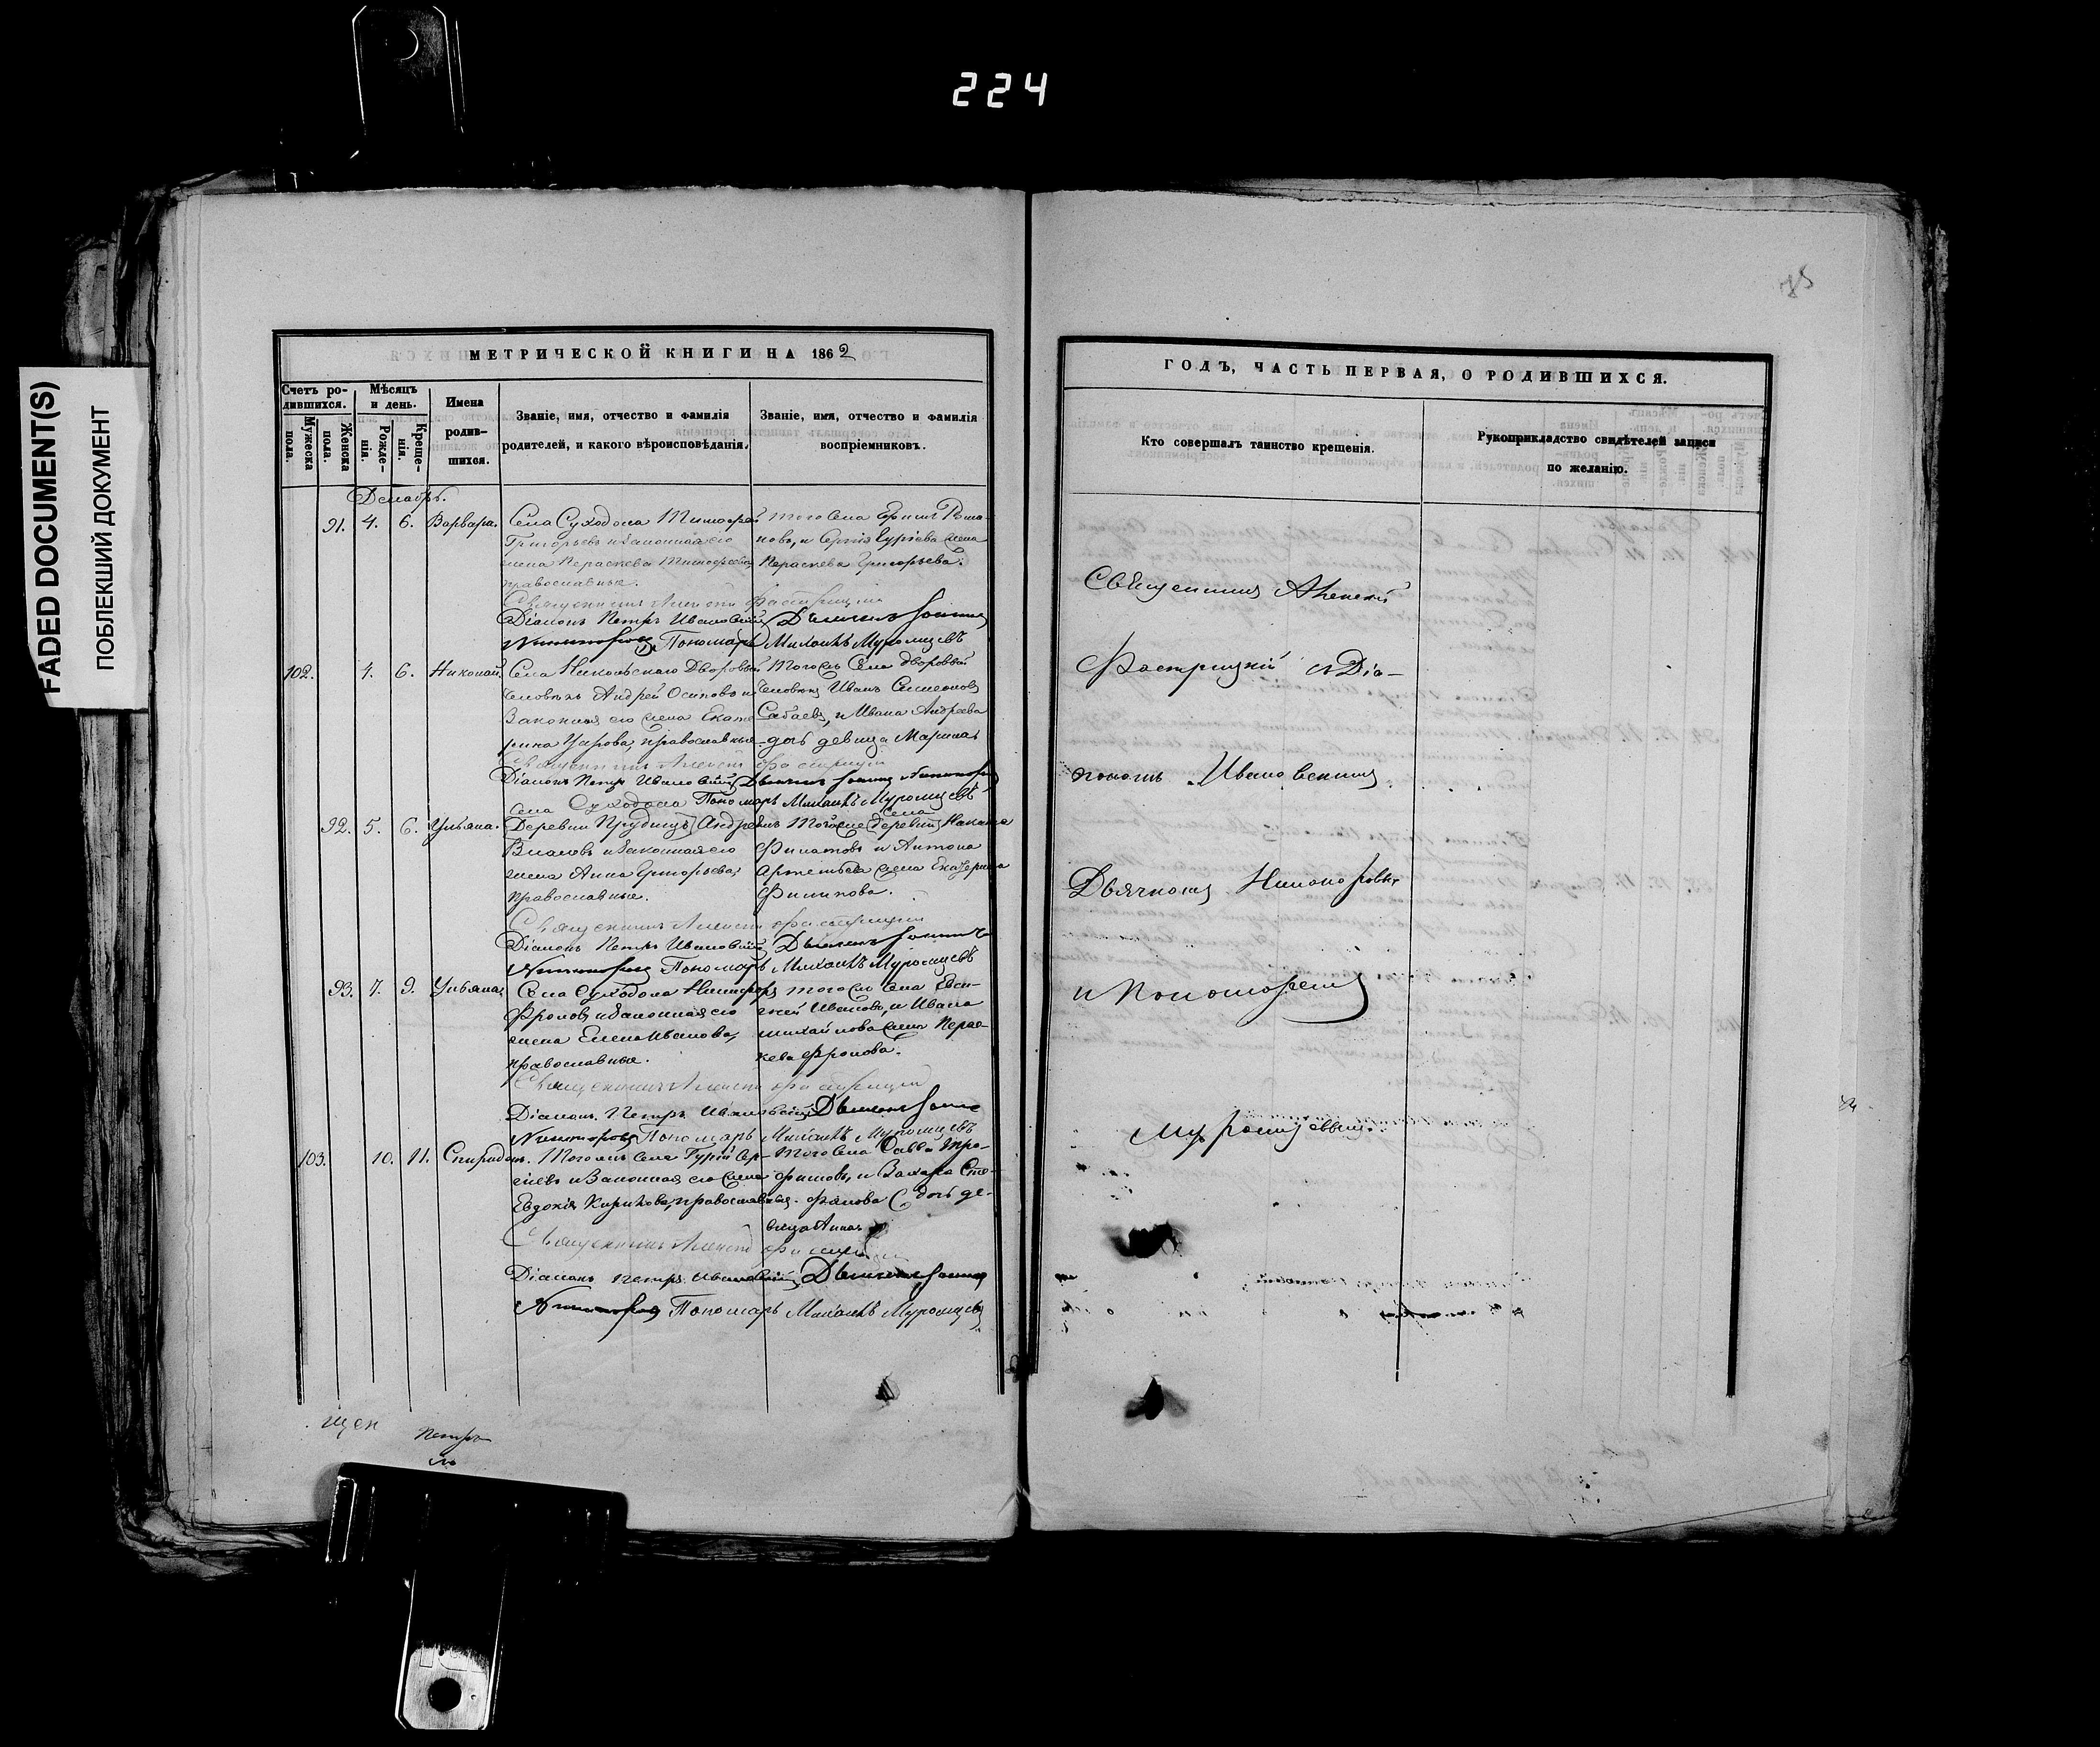 224
FADED DOCUMENT(S)
ПОБЛЕКШИЙ ДОКУМЕНТ
МЕТРИЧЕСКОЙ КНИГИ НА 1862
Счетъ родившихся.
Мужеска пола.
Женска пола.
Мѣсяцъ и день.
Рожденія.
Крещенія.
Имена родившихся.
Званіе, имя, отчество и фамилія
родителей, и какого вѣроисповѣданія.
Званіе, имя, отчество и фамилія
воспріемниковъ.
Декабрь.
91. 4. 6. Варвара.
Села Суходола Тимофей
Григорьевъ и Законная его
жена Параскева Тимофеева
православные.
того села
Романовъ, и Сергія Гуріева жена
Параскева Григорьева.
Священникъ Алексій Фастрицкій
Діаконъ Петръ Ивановскій Дьячекъ Іоаннъ
Никаноровъ Пономарь Михаилъ Муромцевъ
102. 4. 6. Николай.
Села Никольскаго Дворовый
человѣкъ Андрей Осиповъ и
Законная его жена Екате
рина православные.
Тогожъ Села дворовый
человѣкъ Иванъ Симеоновъ
и Ивана Андреева
дочь девица Марина
Священникъ Алексій Фастрицкій
Діаконъ Петръ Ивановскій Дьячекъ Іоаннъ Никаноровъ
Пономарь Михаилъ Муромцевъ
села Суходола
92. 5. 6. Ульяна.
Деревни Прудищъ Андрей
Власовъ и Законная его
жена Анна Григорьева,
православные.
села
Тойже деревни
Филатовъ и Антона
Артемьева жена Екатерина
Филипова.
Священникъ Алексій Фастрицкій
Діаконъ Петръ Ивановскій Дьячекъ Іоаннъ
Никаноровъ Пономарь Михаилъ Муромцевъ
93. 7. 9. Ульяна,
Села Суходола Никифоръ
Фроловъ и Законная его
жена Елена Иванова,
православные.
тогожъ Села Евси-
гней Ивановъ, и Ивана
Михайлова жена Парас-
кева Фролова.
Священникъ Алексій Фастрицкій
Діаконъ Петръ Ивановскій Дьячекъ Іоаннъ
Никаноровъ Пономарь Михаилъ Муромцевъ
103. 10. 11. Спиридонъ.
Тогожъ Села Гурій Сер-
гіевъ и Законная его жена
Евдокія православные.
Того Села Савва Тро-
фимовъ, и Захара Сте-
фанова дочь де-
вица Анна
Священникъ Алексій
Діаконъ Петръ Ивановскій Дьячекъ Іоаннъ
Никаноровъ Пономарь Михаилъ Муромцевъ
щен
Петръ
ГОДЪ, ЧАСТЬ ПЕРВАЯ, О РОДИВШИХСЯ.
Кто совершалъ таинство крещенія.
Рукоприкладство свидѣтелей записи
по желанію.
Священникъ Алексій
Фастрицкій съ Діа-
кономъ Ивановскимъ
Дьячкомъ Никаноровымъ
и Пономаремъ
Муромцевымъ.